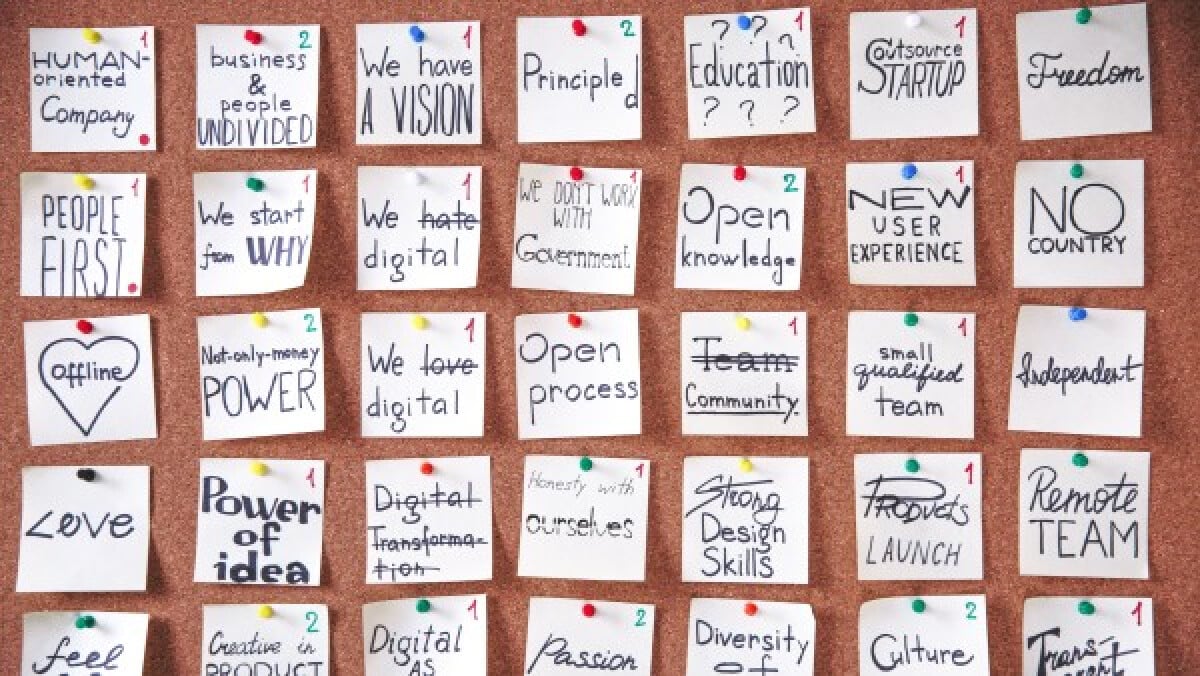 HUMAN- 1
oriented
Company
business 2
&
people
UNDIVIDED
We have 1
A VISION
Principled 2
? ? ? 1
Education
? ? ?
Outsource 1
STARTUP
Freedom
PEOPLE 1
FIRST.
We start 1
from WHY
We hate 1
digital
We DON'T WORK 1
WITH
Government
Open 2
knowledge
NEW 1
USER
EXPERIENCE
NO
COUNTRY
offline
Not-only-money 2
POWER
We love 1
digital
Open
process
Team 1
Community
small 1
qualified
team
Independent
Love
Power 1
of
idea
Digital
Transforma-
tion
Honesty with 1
ourselves
Strong
Design
Skills
PRODUCTS 1
LAUNCH
REMOTE
TEAM
feel
Creative in 2
PRODUCT
Digital 1
AS
Passion 2
Diversity
of
Culture 2
Trans- 1